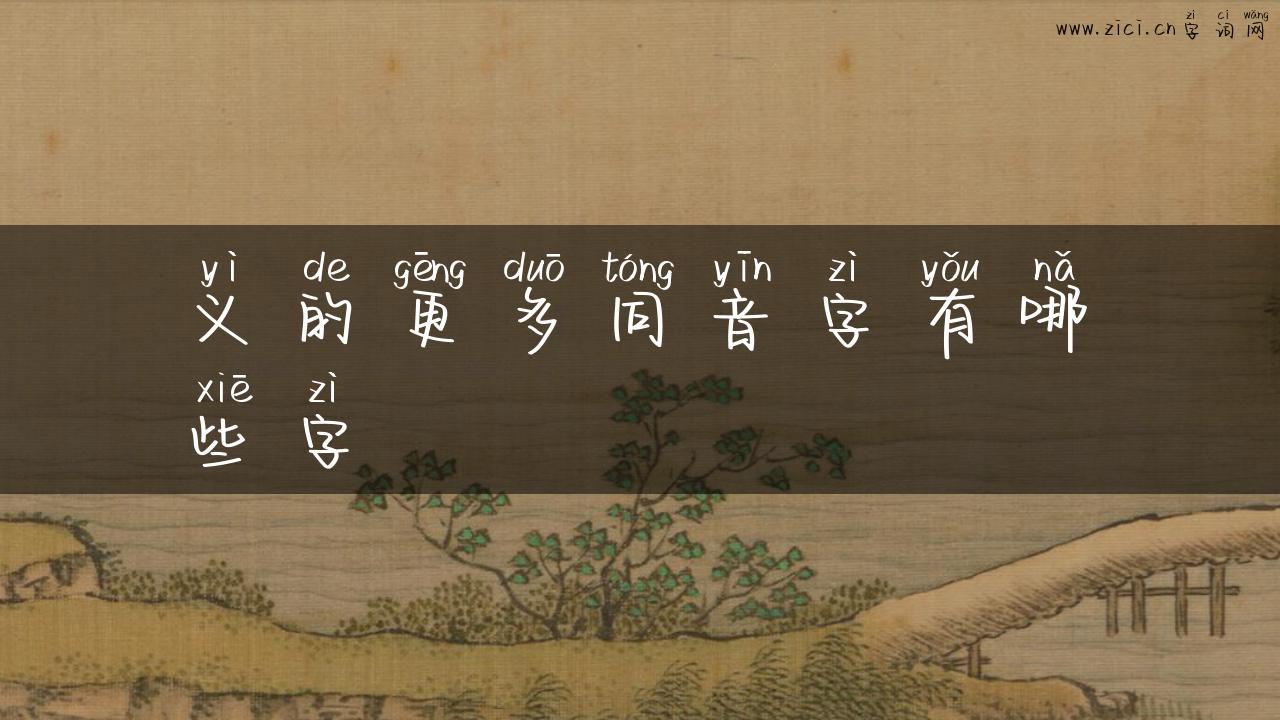 zì cí wǎng
www.zici.cn 字词网
yì de gēng duō tóng yīn zì yǒu nǎ
义的更多同音字有哪
xiē zì
些字